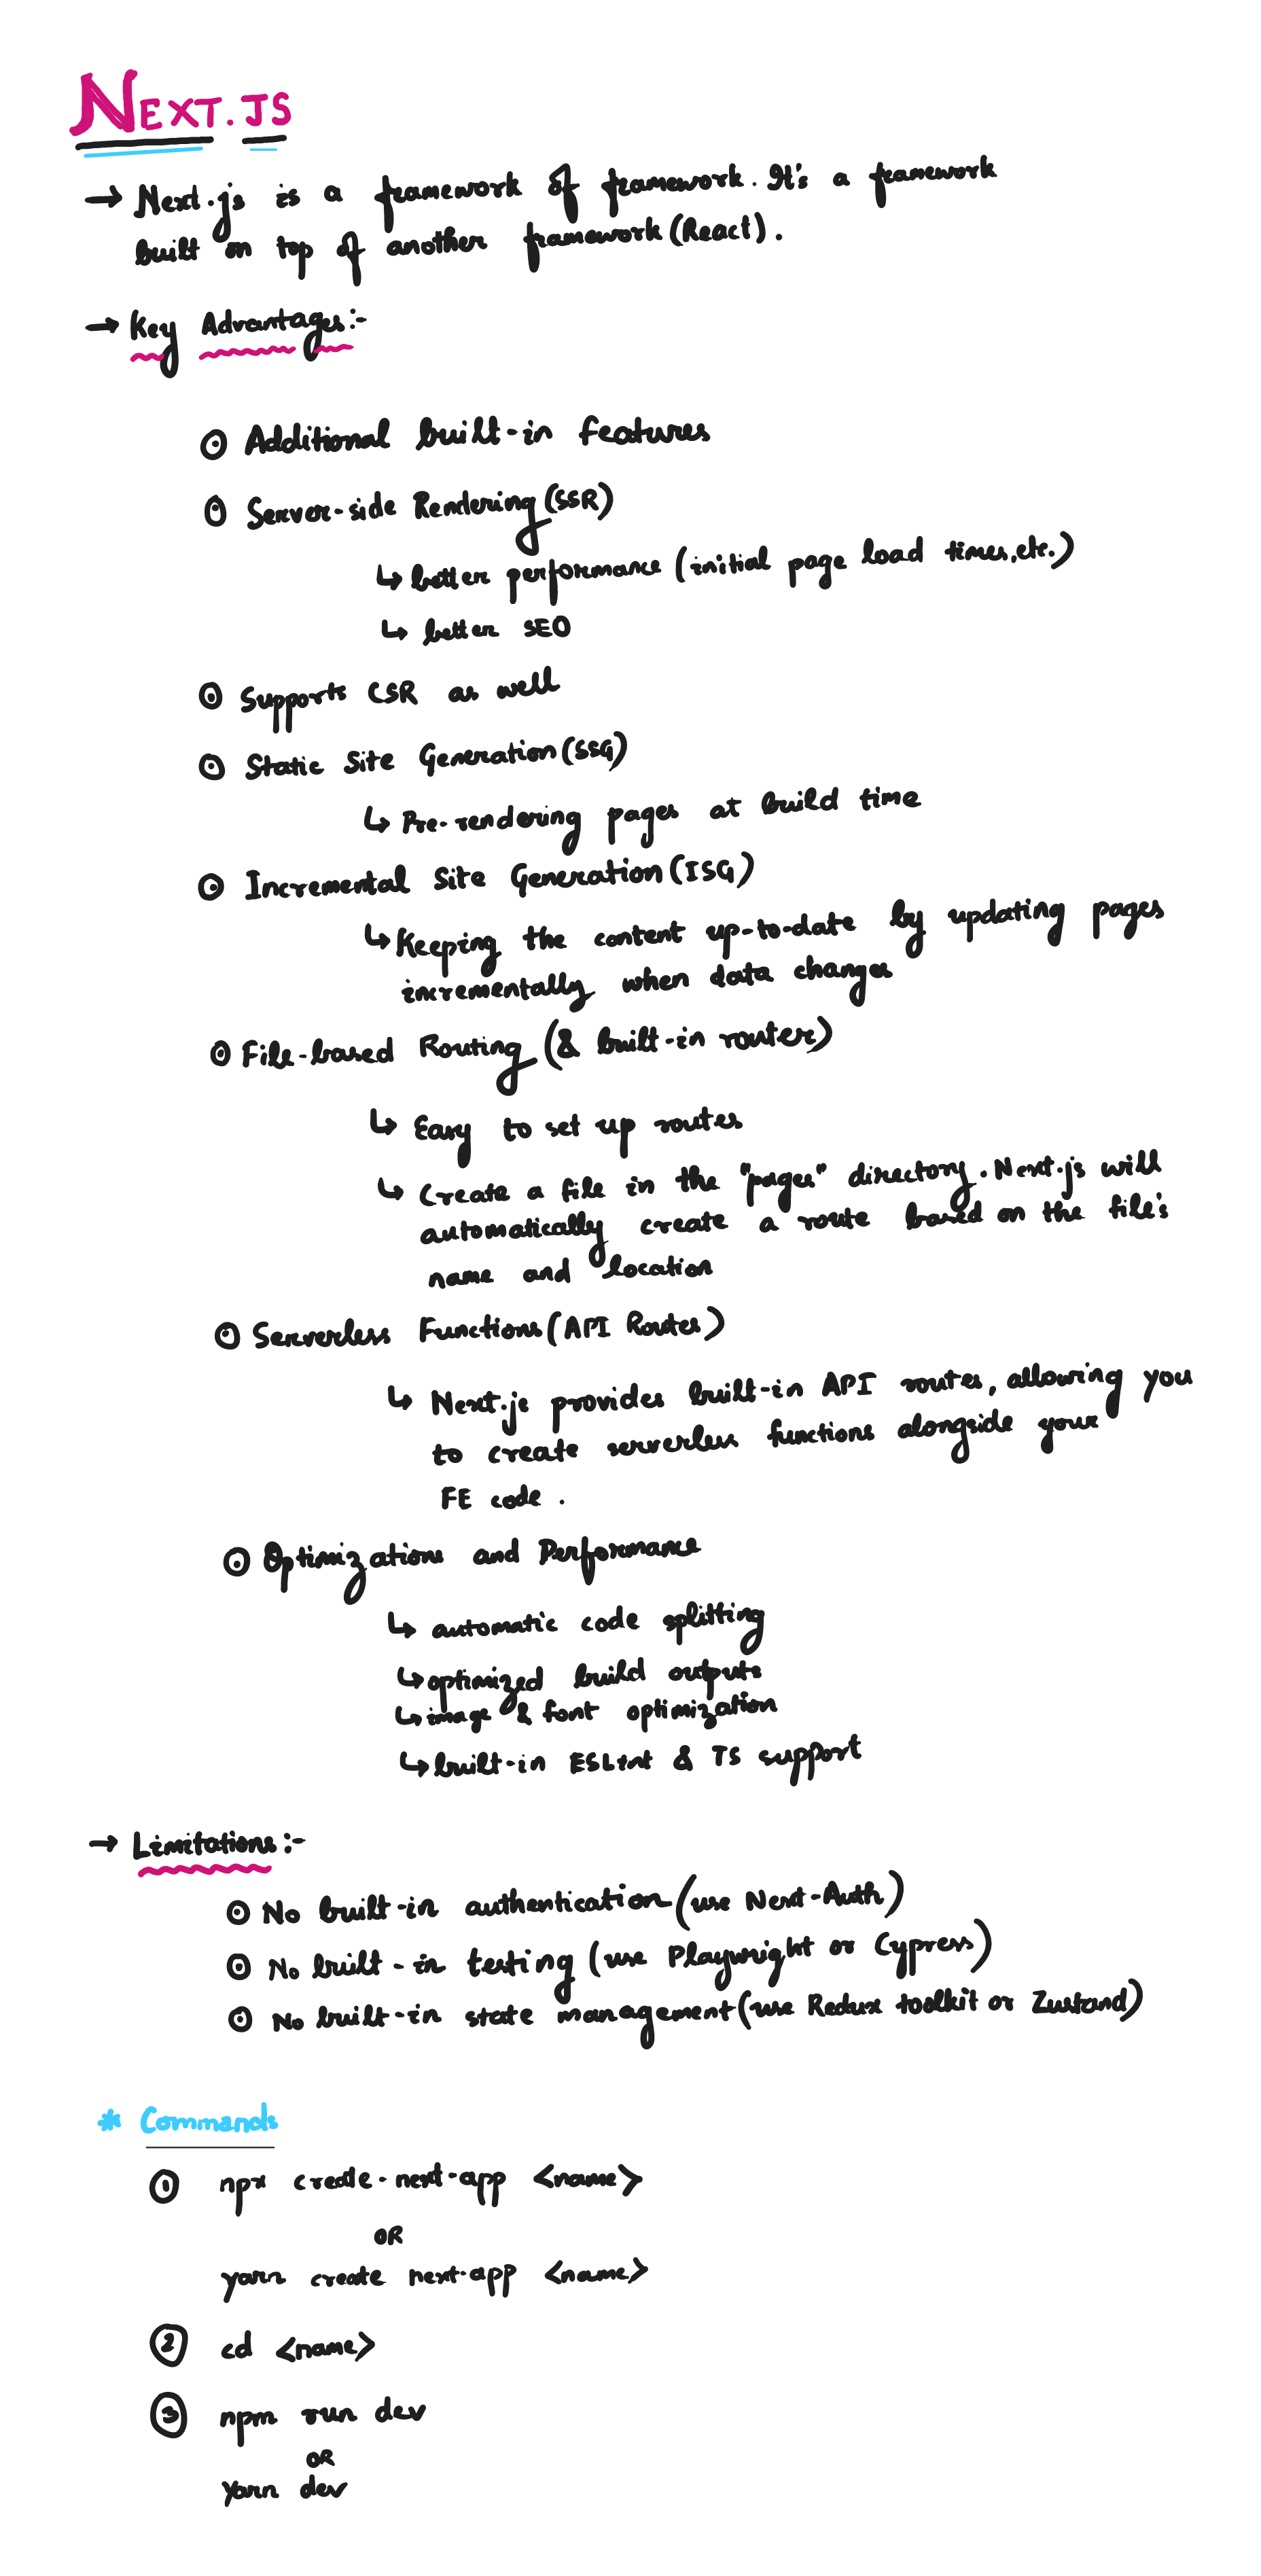 NEXT.JS
→ Next.js is a framework of framework. It's a framework
built on top of another framework (React).
→ Key Advantages:-
⊙ Additional built-in features
⊙ Server-side Rendering (SSR)
↳ better performance (initial page load times, etc.)
↳ better SEO
⊙ Supports CSR as well
⊙ Static Site Generation (SSG)
↳ Pre-rendering pages at build time
⊙ Incremental Site Generation (ISG)
↳ Keeping the content up-to-date by updating pages
incrementally when data changes
⊙ File-based Routing (& built-in router)
↳ Easy to set up routes
↳ Create a file in the "pages" directory. Next.js will
automatically create a route based on the file's
name and location
⊙ Serverless Functions (API Routes)
↳ Next.js provides built-in API routes, allowing you
to create serverless functions alongside your
FE code.
⊙ Optimizations and Performance
↳ automatic code splitting
↳ optimized build outputs
↳ image & font optimization
↳ built-in ESLint & TS support
→ Limitations:-
⊙ No built-in authentication (use Next-Auth)
⊙ No built-in testing (use Playwright or Cypress)
⊙ No built-in state management (use Redux toolkit or Zustand)
* Commands
① npx create-next-app <name>
OR
yarn create next-app <name>
② cd <name>
③ npm run dev
OR
yarn dev